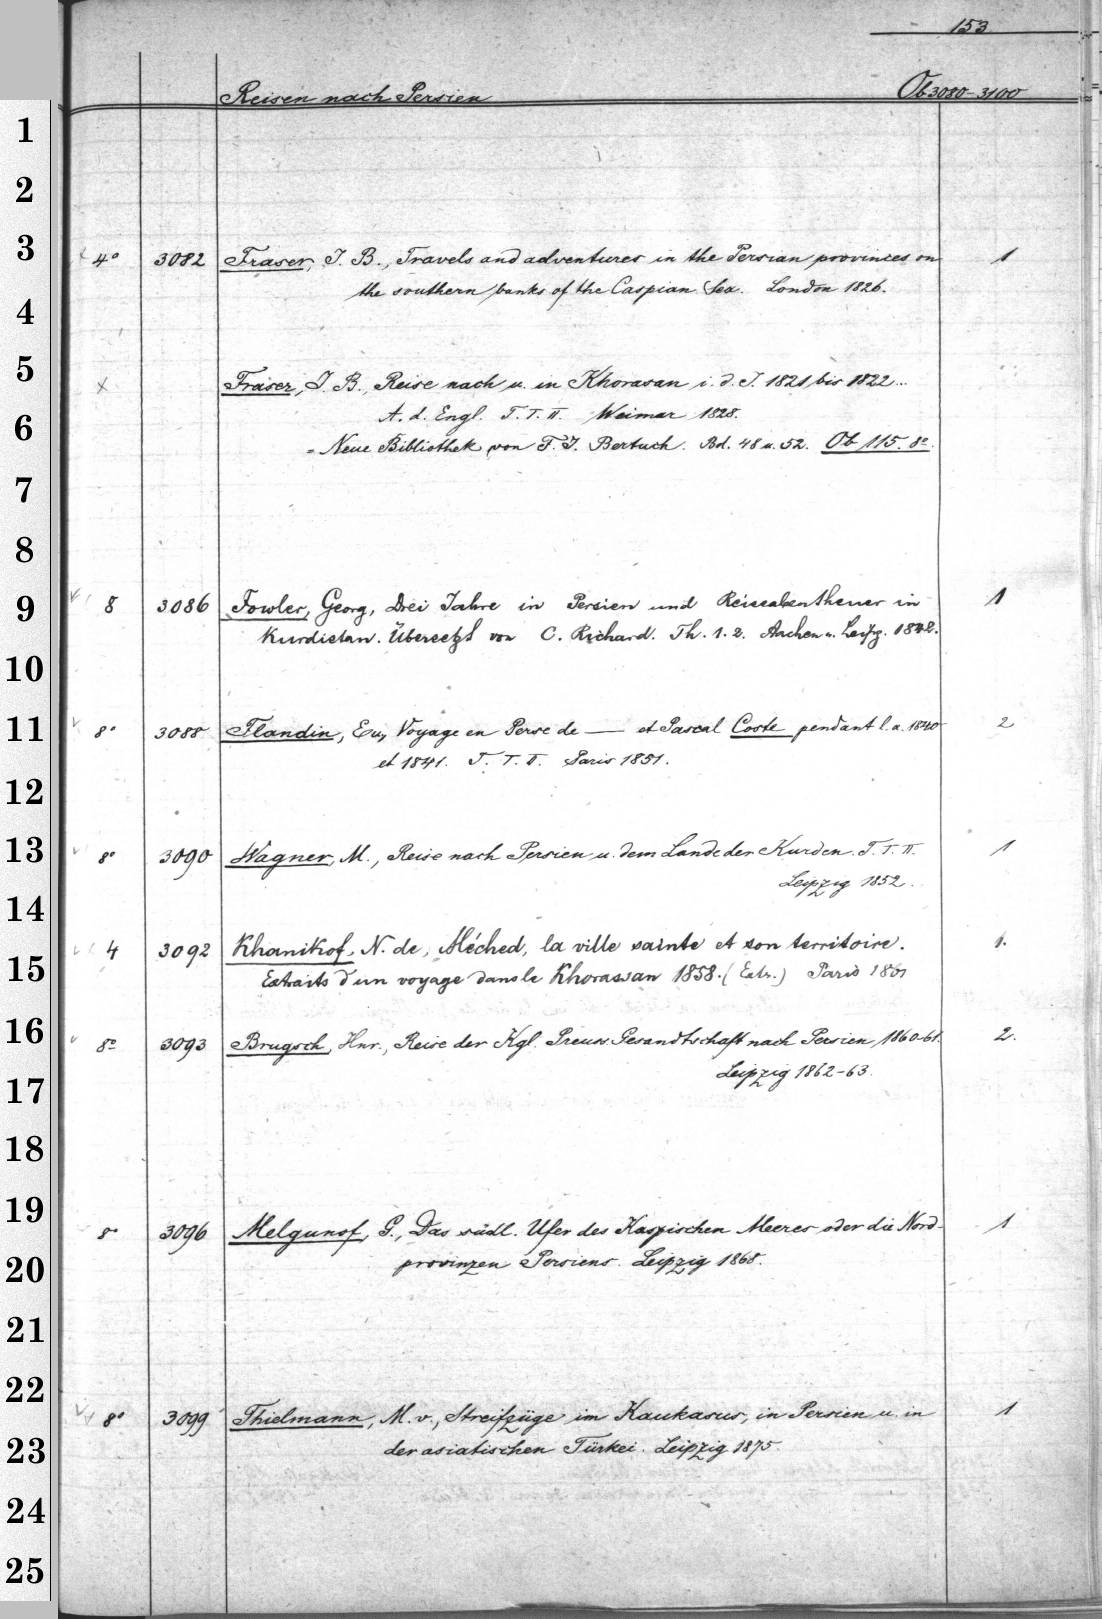 153
Reisen nach Persien Ob 3080-3100
4° 3082 Fraser, J. B., Travels and adventures in the Persian provinces on 1
the southern banks of the Caspian Sea. London 1826.
x Fraser, J. B., Reise nach u. in Khorasan i. d. J. 1821 bis 1822...
A. d. Engl. T. I. II. Weimar 1828.
= Neue Bibliothek von F. J. Bertuch. Bd. 48 u. 52. Ob 115. 8°.
8 3086 Fowler, Georg, Drei Jahre in Persien und Reiseabentheuer in 1
Kurdistan. Übersetzt von C. Richard. Th. 1. 2. Aachen u. Leipzg. 1842.
8° 3088 Flandin, Eu, Voyage en Perse de — et Pascal Coste pendant l. a. 1840 2
et 1841. T. I. II. Paris 1851.
8° 3090 Wagner, M., Reise nach Persien u. dem Lande der Kurden. T. I. II. 1
Leipzig 1852.
4 3092 Khanikof, N. de, Méched, la ville sainte et son territoire. 1.
Extraits d'un voyage dans le Khorassan 1858. (Extr.) Paris 1861
8° 3093 Brugsch, Hnr., Reise der Kgl. Preuss. Gesandtschaft nach Persien 1860-61. 2.
Leipzig 1862-63.
8° 3096 Melgunof, G., Das südl. Ufer des Kaspischen Meeres oder die Nord- 1
provinzen Persiens. Leipzig 1868.
8° 3099 Thielmann, M. v., Streifzüge im Kaukasus, in Persien u. in 1
der asiatischen Türkei. Leipzig 1875.
1
2
3
4
5
6
7
8
9
10
11
12
13
14
15
16
17
18
19
20
21
22
23
24
25